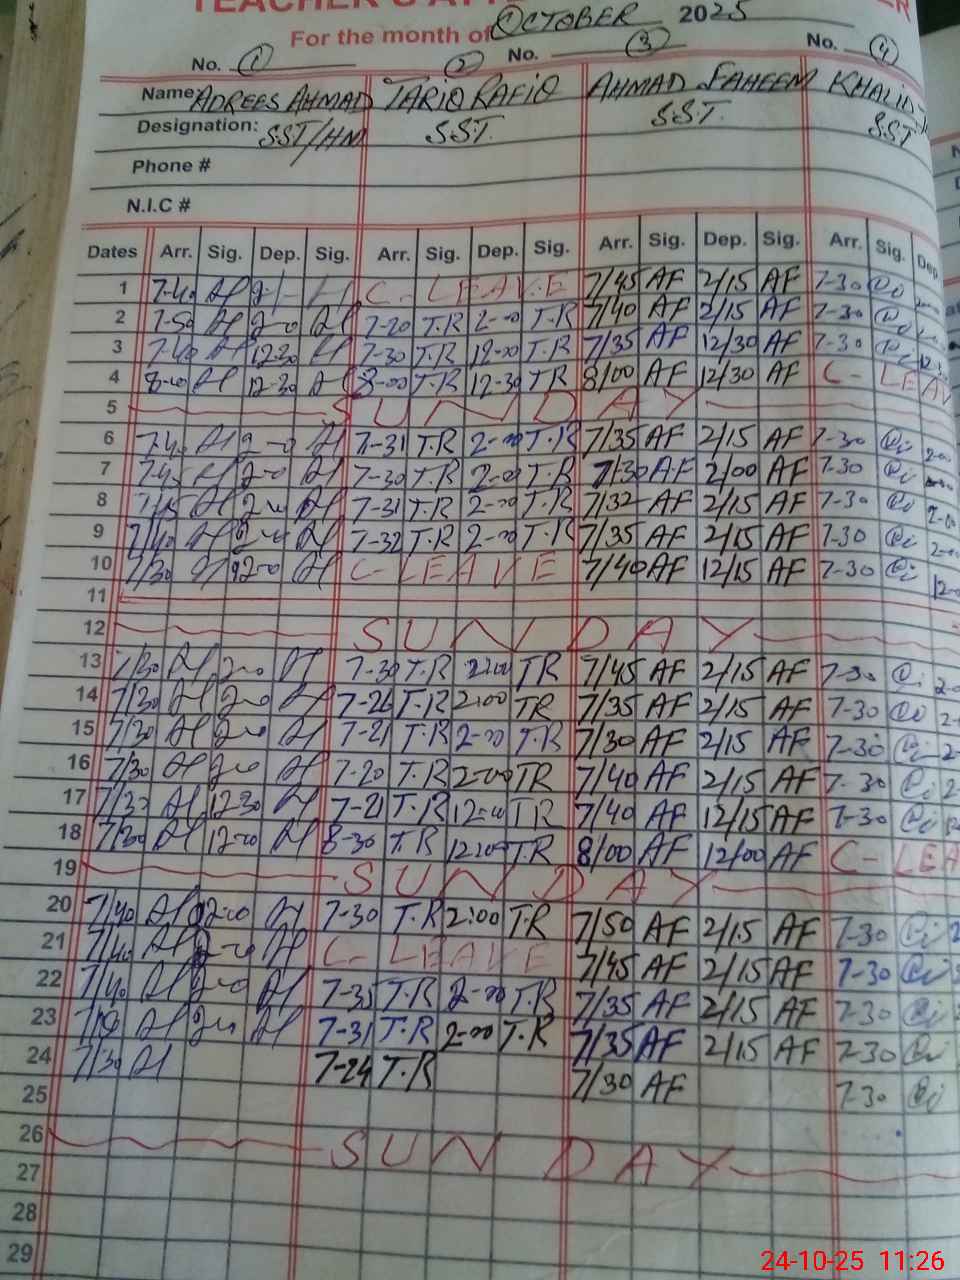 TEACHER'S ATTE
For the month of OCTOBER 2025
No. 1 2 No. 3 No. 4
Name ADREES AHMAD TARIQ RAFIQ AHMAD FAHEEM KHALID
Designation: SST/HM S.S.T. S.S.T. S.S.T
Phone #
N.I.C #
Dates Arr. Sig. Dep. Sig. Arr. Sig. Dep. Sig. Arr. Sig. Dep. Sig. Arr. Sig. Dep
1 7-40 C-LEAVE 7/45 AF 2/15 AF 7-30
2 7-50 2-0 7-20 T.R 2-00 T.R 7/40 AF 2/15 AF 7-30
3 7-40 12-30 7-30 T.R 12-00 T.R 7/35 AF 12/30 AF 7-30
4 8-00 12-30 8-00 T.R 12-30 TR 8/00 AF 12/30 AF C-LEAV
5 SUNDAY
6 2-0 7-31 T.R 2-00 T.R 7/35 AF 2/15 AF 7-30 2-00
7 7-45 2-0 7-30 T.R 2-00 T.R 7/30 AF 2/00 AF 7-30
8 7/45 2-0 7-31 T.R 2-00 T.R 7/32 AF 2/15 AF 7-30 2-00
9 7/40 2-0 7-32 T.R 2-00 T.R 7/35 AF 2/15 AF 7-30
10 7/30 12-0 C-LEAVE 7/40 AF 12/15 AF 7-30
11
12 SUNDAY
13 7/30 2-0 7-30 T.R 2:00 TR 7/45 AF 2/15 AF 7-30
14 7/30 2-0 7-26 T.R 2:00 TR 7/35 AF 2/15 AF 7-30
15 7/30 2-0 7-21 T.R 2-00 T.R 7/30 AF 2/15 AF 7-30
16 7/30 2-0 7-20 T.R 2-00 TR 7/40 AF 2/15 AF 7-30
17 7/30 12-30 7-21 T.R 12-00 TR 7/40 AF 12/15 AF 7-30
18 7/30 12-00 8-30 T.R 12:00 T.R 8/00 AF 12/00 AF C-LEA
19 SUNDAY
20 7/40 2-0 7-30 T.R 2:00 T.R 7/50 AF 2/15 AF 7-30
21 7/40 2-0 C-LEAVE 7/45 AF 2/15 AF 7-30
22 7/40 2-0 7-35 T.R 2-00 T.R 7/35 AF 2/15 AF 7-30
23 7-31 T.R 2-00 T.R 7/35 AF 2/15 AF 7-30
24 7/30 7-24 T.R 7/30 AF 7-30
25
26 SUNDAY
27
28
29
24-10-25 11:26